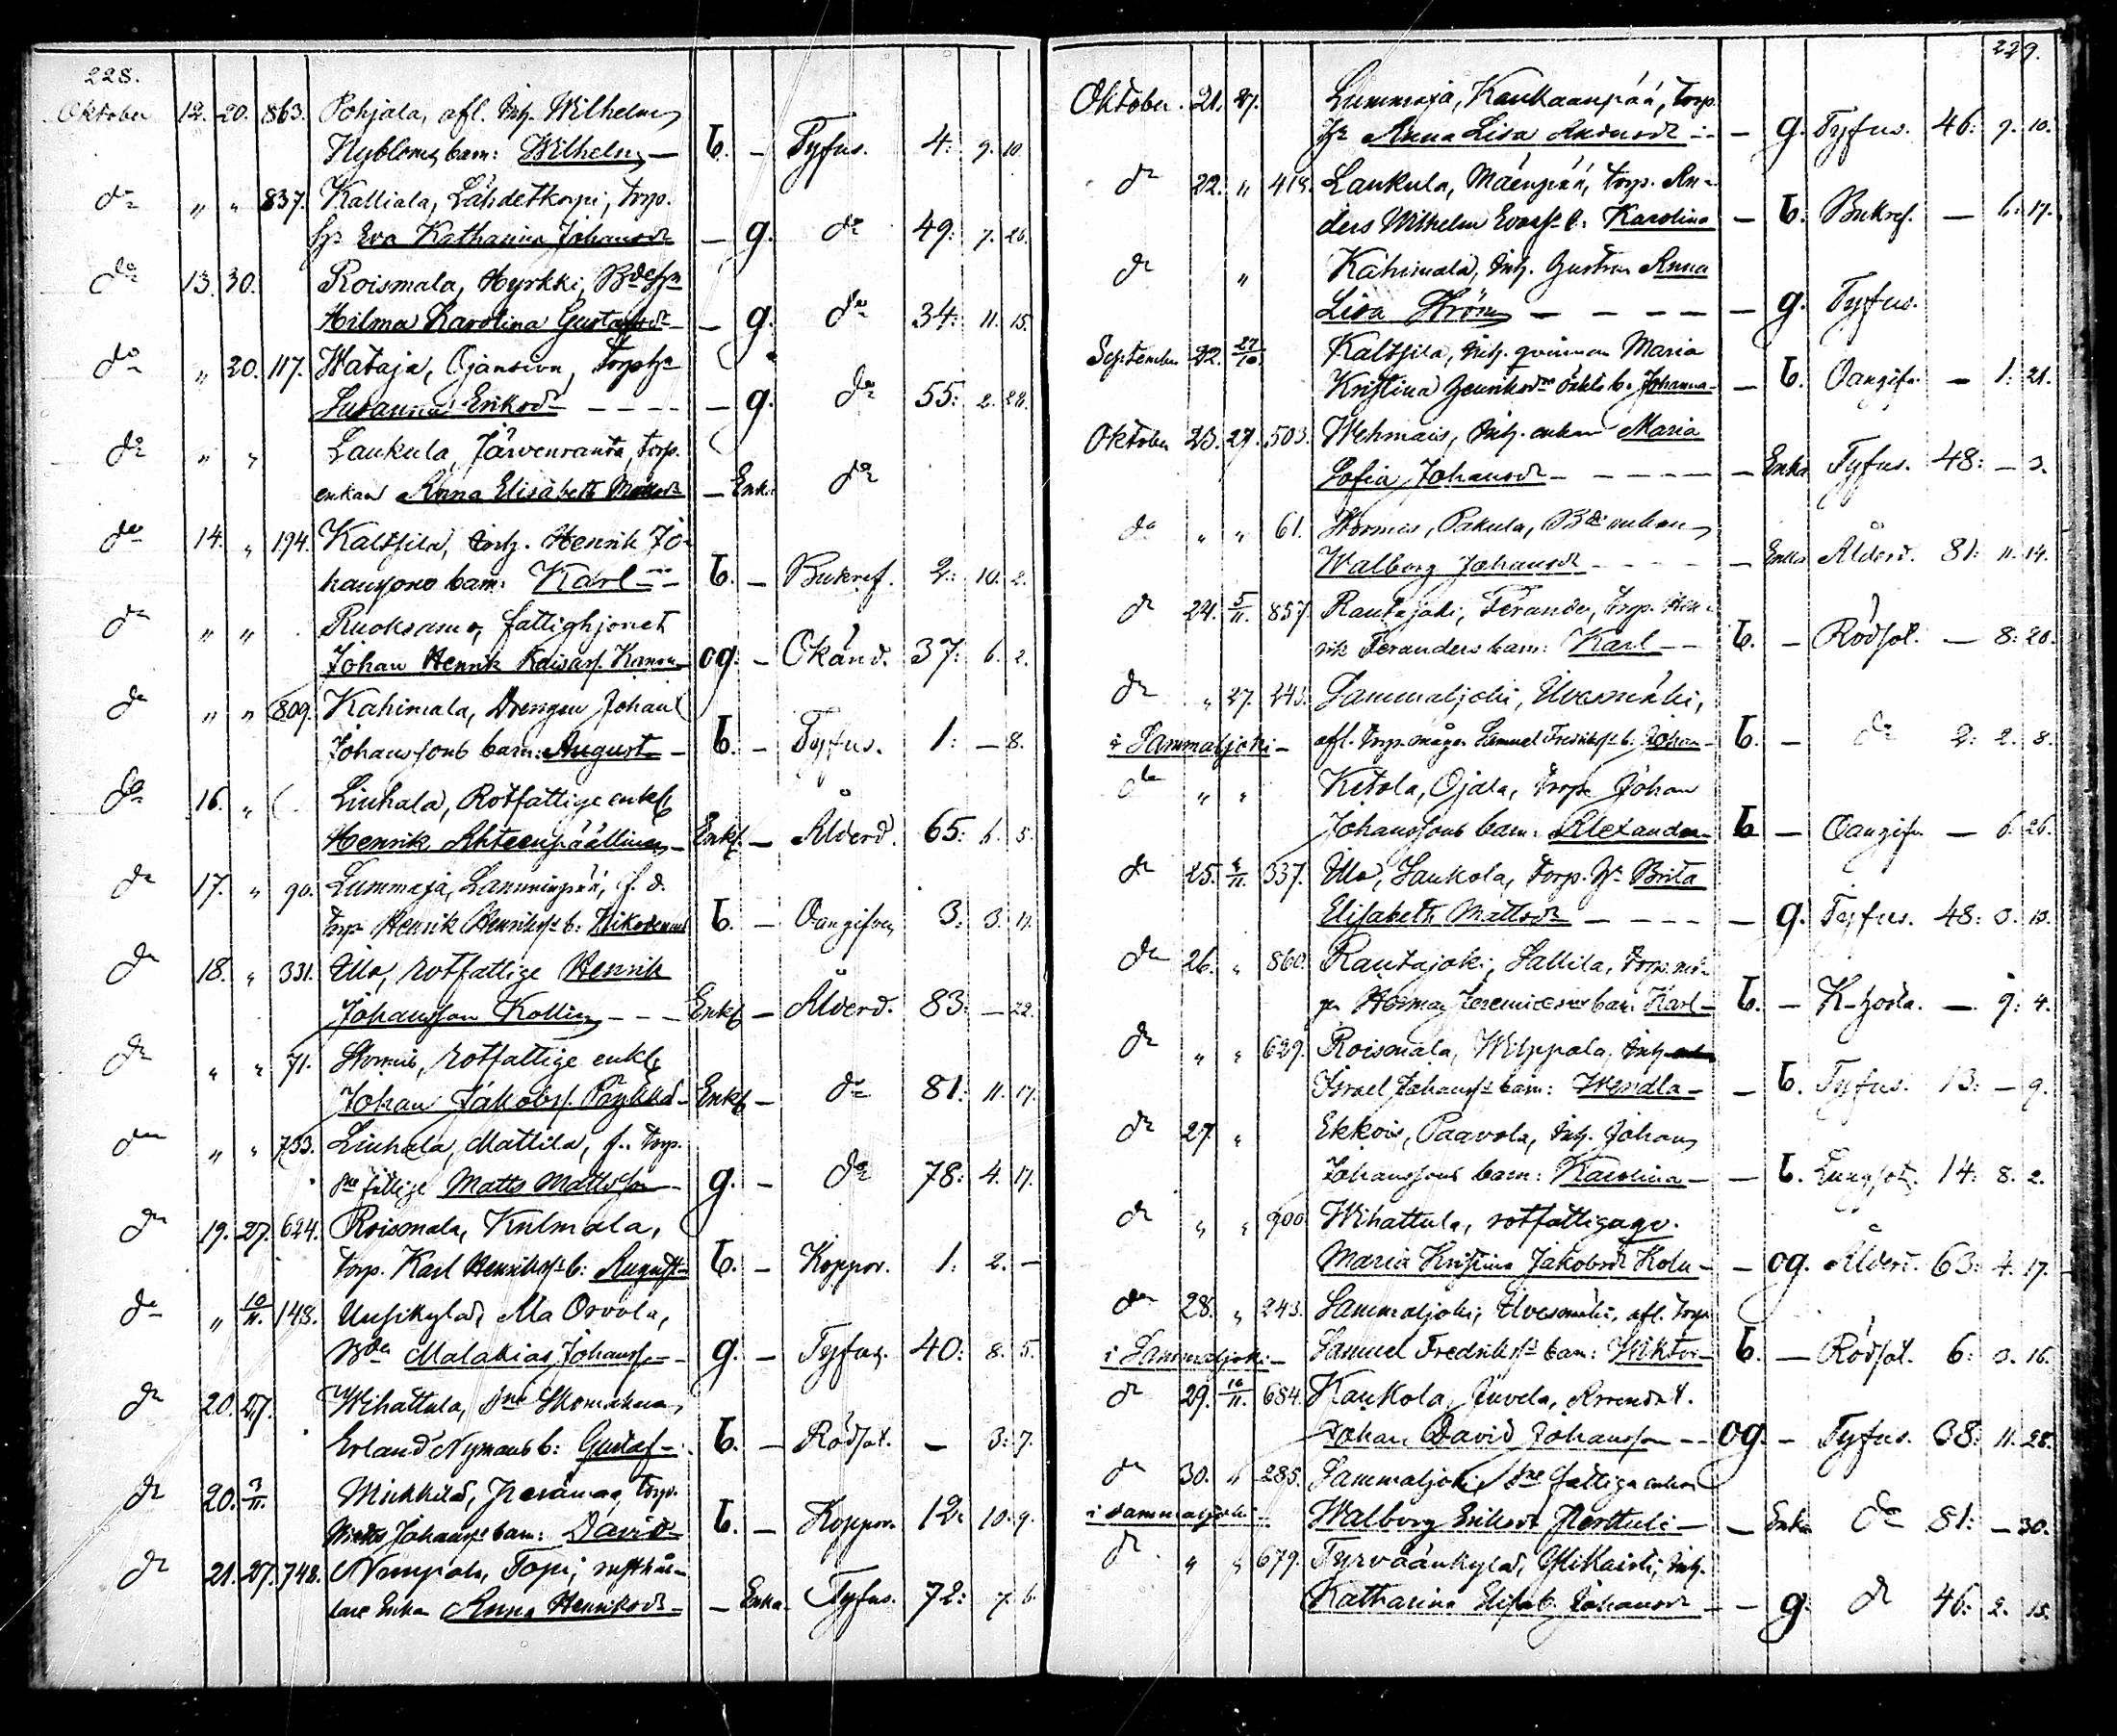 228.
Oktober 12. 20. 863. Pohjala, afl. Inh. Wilhelm
Nybloms barn: Wilhelm — b. — Tyfus. 4: 9. 10.
do " " 837. Kalliala, Lähdetkorpi, torp.
hr Eva Katharina Johansdr — g. do 49: 7. 26.
do 13. 30. Roismala, Hyrkki, Bdehr
Hilma Karolina Gustafsdr — g. do 34: 11. 15.
do " 20. 117. Wataja, Ojansivu, Torp hr
Susanna Eriksdr — — — — g. do 55: 2. 28.
do " " Laukula, Järvenranta, torp.
enkan Anna Elisabeth Mattsdr — Enk. do
do 14. " 194. Kaltsila, Inh. Henrik Jo-
hanssons barn: Karl — b. — Bukref. 2: 10. 2.
do " " Ruoksamo, fattighjonet
Johan Henrik Kaisasf. — og. — Okänd. 37: 6. 2.
do " " 809. Kahimala, Drengen Johan
Johanssons barn: August — b. — Tyfus. 1: — 8.
do 16. " Liuhala, Rotfattige enkl.
Henrik — Enkl. — Ålderd. 65: 6. 5.
do 17. " 90. Lummaja, Lamminpää, f. d.
torp Henrik Henrikss b: Nikodemus b. — Oangifven 3: 3. 11.
do 18. " 331. Illo, rotfattige Henrik
Johansson Kollin — — — Enkl. — Ålderd. 83: — 22.
do " " 71. Stormis, rotfattige enkl.
Johan Jakobsf. — Enkl. — do 81: 11. 17.
do " " 733. Liuhala, Mattila, f. torp.
sne fattige Matts Mattsson — g. — do 78: 4. 17.
do 19. 27. 624. Roismala, Kulmala,
torp. Karl Henrikss b: August — b. — Koppor. 1: 2. —
do " 10/11. 148. Uusikylä, Ala Orvola,
Bde Malakias Johansson — g. — Tyfus. 40: 8. 5.
do 20. 27. Wihattula, sne Skomakaren
Erland Nymans b: Gustaf — b. — Rödsot. — 3: 7.
do 20. 3/11. Mickkilä, Peränmaa, torp.
Johanss barn: David — b. — Koppor. 12: 10. 9.
do 21. 27. 748. Numpala, Topi, rusthål-
lare Enka Anna Henriksdr — — Enka. Tyfus. 72: 7. 6.
229.
Oktober. 21. 27. Lummaja, Kaukaanpää, torp.
hr Anna Lisa Andersdr — — g. Tyfus. 46: 9. 10.
do 22. " 418. Laukula, Mäenpää, torp. An-
ders Wilhelm b: Karolina — b. Bukref. — 6: 17.
do " Kahimala, Inh. hustrun Anna
Lisa Ström — — — — g. Tyfus.
September 22. 27/10. Kaltsila, Inh. qvinnan Maria
Kristina Henriksdrs oäkta b. Johanna — b. Oangifn. — 1: 21.
Oktober 23. 27. 503. Wehmais, Inh. enkan Maria
Sofia Johansdr — — — — Enka Tyfus. 48: — 3.
do " " 61. Stormis, Pakula, Bde enkan
Walborg Johansdr — — — — Enka Ålderd. 81: 11. 14.
do 24. 5/11. 857. Rautajoki, Ferander, torp. Hen-
rik Feranders barn: Karl — b. — Rödsot. — 8: 20.
do " 27. 243. Sammaljoki, Uvesmäki,
i Sammaljoki — afl. torp.mågen Samuel Fredrikss b: Johan — b. — do 2: 2. 8.
do " " Ketola, Ojala, torp. Johan
Johanssons barn: Alexander — b — Oangifn — 6: 26.
do 25. 337. Illo, Laukola, torp. hr Brita
Elisabeth Mattsdr — — — — g. Tyfus. 48: 3. 10.
do 26. " 860. Rautajoki, Sallila, torp. må-
gen Herman barn: Karl — b. — K-hosta. — 9: 4.
do " " 629. Roismala, Wilppala, Inh.
Israel Johanss barn: Wendla — — b. Tyfus. 13: — 9.
do 27. " Ekkois, Paavola, Inh. Johan
Johanssons barn: Karolina — — b. Lungsot. 14: 8. 2.
do " " 900. Wihattula, rotfattigaqv.
Maria Kristina Jakobsdr — — og. Ålderd. 63: 4. 17.
do 28. " 243. Sammaljoki, Uvesmäki, afl. torp
i Sammaljoki — Samuel Fredrikss barn: Wiktor — b. — Rödsot. 6: 3. 16.
do 29. 10/11. 684. Kaukola, Juvela, Arrendat.
Johan David Johansson — og. — Tyfus. 38: 11. 28.
do 30. " 285. Sammaljoki, sne fattiga enkan
i Sammaljoki. Walborg Eriksdr Perttuli — — Enka do 81: — 30.
do " " 679. Tyrväänkylä, Inh.
Katharina Elisab. Johansdr — — g. do 46: 2. 15.